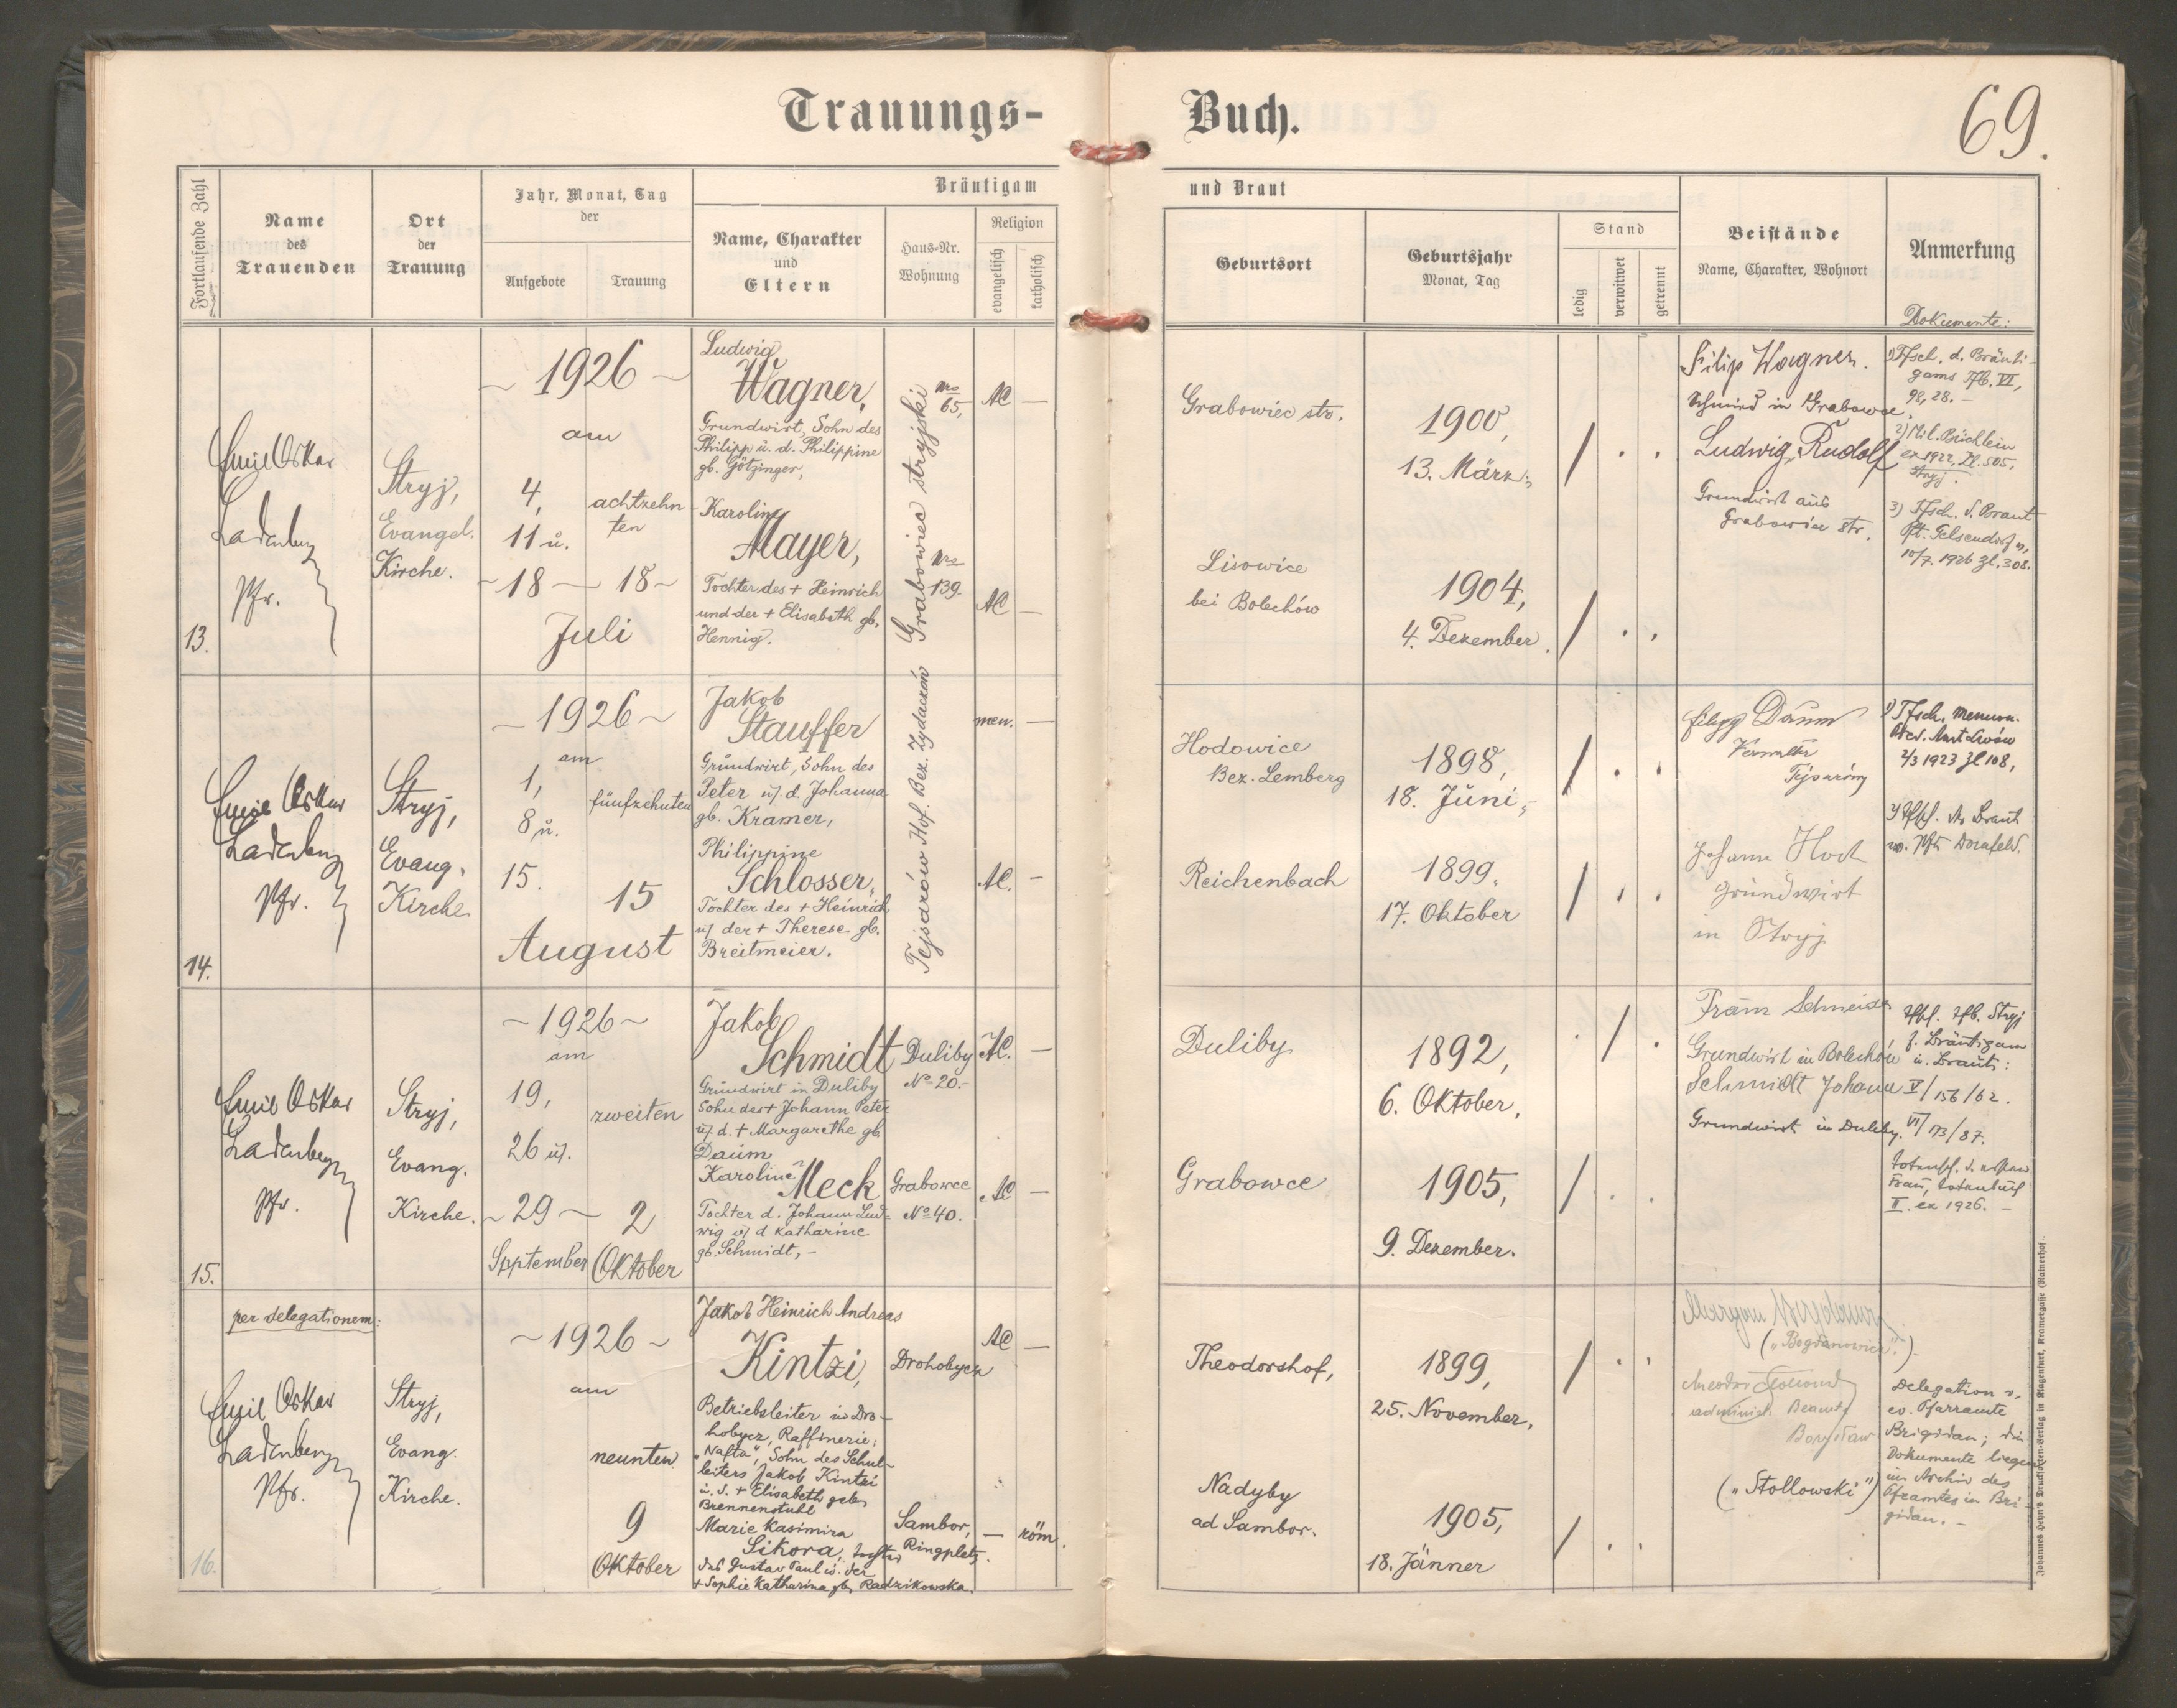 Trauungs-
Buch.
69.
Fortlaufende Zahl
Name
des
Trauenden
Ort
der
Trauung
Jahr, Monat, Tag
der
Aufgebote
Trauung
Bräutigam
Name, Charakter
und
Eltern
Haus-Nr.
Wohnung
Religion
evangelisch
katholisch
und Braut
Geburtsort
Geburtsjahr
Monat, Tag
Stand
ledig
verwitwet
getrennt
Beistände
Name, Charakter, Wohnort
Anmerkung
Dokumente:
13.
Emil Oskar
Ladenberger
Pfr.
Stryj,
Evangel.
Kirche.
~ 1926 ~
am
4,
11 u.
~ 18 —
achtzehn
ten
18 ~
Juli
Ludwig
Wagner,
Grundwirt, Sohn des
Philipp u. d. Philippine
gb. Götzinger,
Karoline
Mayer,
Tochter des + Heinrich
und der + Elisabeth gb.
Hennig.
Grabowiec stryjski
Nro
65,
Nro
139.
AC —
AC —
Grabowiec str.
1900,
13. März.
Lisowice
bei Bolechów
1904,
4. Dezember.
Filip Wagner.
Schmied in Grabowce.
Ludwig Rudolf
Grundwirt aus
Grabowiec str.
1) Tfsch. d. Bräuti-
gams Tfb. VI,
98, 28. –
2) Mil. Büchlein
ex 1922, Zl. 505,
Stryj.
3) Tfsch. d. Braut
Pft. Gelsendorf v.
10/7. 1926 Zl. 308.
14.
Emil Oskar
Ladenberger
Pfr.
Stryj,
Evang.
Kirche
~ 1926 ~
am
1,
8 u.
15.
fünfzehnten
15
August
Jakob
Stauffer
Grundwirt, Sohn des
Peter u. d. Johanna
gb. Kramer,
Philippine
Schlosser,
Tochter des + Heinrich
u. der + Therese gb.
Breitmeier.
Tejsarów Hof. Bez. Zydaczów
men. —
AC. —
Hodowice
Bez. Lemberg
1898,
18. Juni,
Reichenbach
1899,
17. Oktober
Filipp Daum
Verwalter
Johann Hoch
Grundwirt
in Stryj
1) Tfsch. Mennon.
2/3 1923 Zl 108,
2) Tfsch. der Braut
v. Pft Dornfeld.
15.
Emil Oskar
Ladenberger
Pfr.
Stryj,
Evang.
Kirche.
~ 1926 ~
am
19,
26 u.
~ 29 ~
September
zweiten
2
Oktober
Jakob
Schmidt
Grundwirt in Duliby
Sohn des + Johann Peter
u. d. + Margarethe gb.
Daum
Karoline
Meck
Tochter d. Johann Lud-
wig u. d Katharine
gb. Schmidt, –
Duliby
No 20. –
Grabowce
No 40.
AC. —
AC —
Duliby
1892,
6. Oktober,
Grabowce
1905,
9. Dezember.
Franz Schneider
Grundwirt in Bolechów
Schmidt Johann
Grundwirt in Duliby.
Tfsch. Tfb. Stryj
f. Bräutigam
u. Braut:
V/156/62.
VI/173/87.
Totensch. d. ersten
Frau, Totenbuch
II. ex 1926. –
16.
per delegationem:
Emil Oskar
Ladenberger
Pfr.
Stryj,
Evang.
Kirche.
~ 1926 ~
am
neunten
9
Oktober
Jakob Heinrich Andreas
Kintzi,
Betriebsleiter in Dro-
hobycz, Raffinerie:
"Nafta", Sohn des Schul-
leiters Jakob Kintzi
u. d. + Elisabeth geb.
Brennenstuhl
Marie Kasimira
Sikora, Tochter
des Gustav Paul u. der
+ Sophie Katharina gb. Radzikowska.
Drohobycz
Sambor,
Ringplatz.
AC —
— röm.
Theodorshof,
1899,
25. November,
Nadyby
ad Sambor.
1905,
18. Jänner
("Bogdanowicz".)
administ. Beamter
Borysław
("Stollowski")
Delegation v.
ev. Pfarramte
Brigidau; die
Dokumente liegen
im Archiv des
Pframtes in Bri-
gidau. –
Johannes Heyn's Drucksorten-Verlag in Klagenfurt, Kramergasse (Rainerhof).